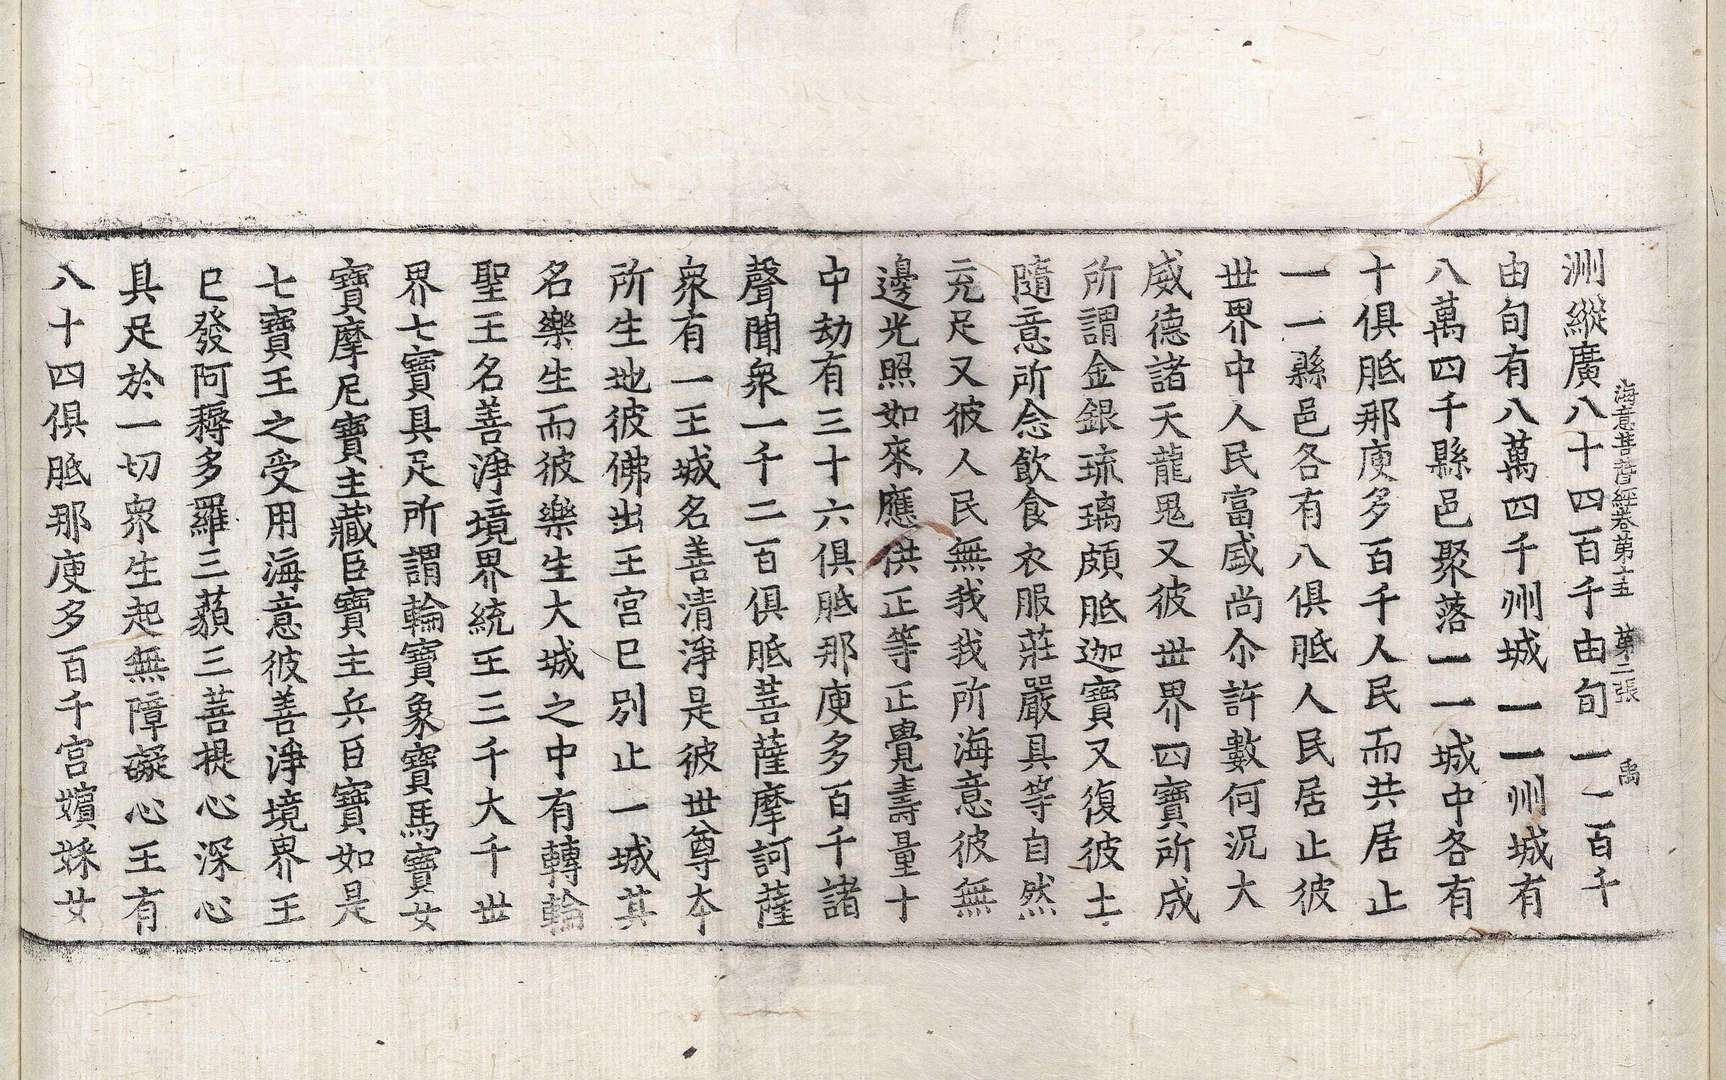 海意菩薩經卷第十五 第二張 禹
洲縱廣八十四百千由旬一一百千
由旬有八萬四千州城一一州城有
八萬四千縣邑聚落一一城中各有
十俱胝那庾多百千人民而共居止
一一縣邑各有八俱胝人民居止彼
世界中人民富盛尚尒許數何況大
威德諸天龍鬼又彼世界四寶所成
所謂金銀琉璃頗胝迦寶又復彼土
隨意所念飲食衣服莊嚴具等自然
充足又彼人民無我我所海意彼無
邊光照如來應供正等正覺壽量十
中劫有三十六俱胝那庾多百千諸
聲聞衆一千二百俱胝菩薩摩訶薩
衆有一王城名善清淨是彼世尊本
所生地彼佛出王宮已別止一城其
名樂生而彼樂生大城之中有轉輪
聖王名善淨境界統王三千大千世
界七寶具足所謂輪寶象寶馬寶女
寶摩尼寶主藏臣寶主兵臣寶如是
七寶王之受用海意彼善淨境界王
已發阿耨多羅三藐三菩提心深心
具足於一切衆生起無障礙心王有
八十四俱胝那庾多百千宮嬪婇女